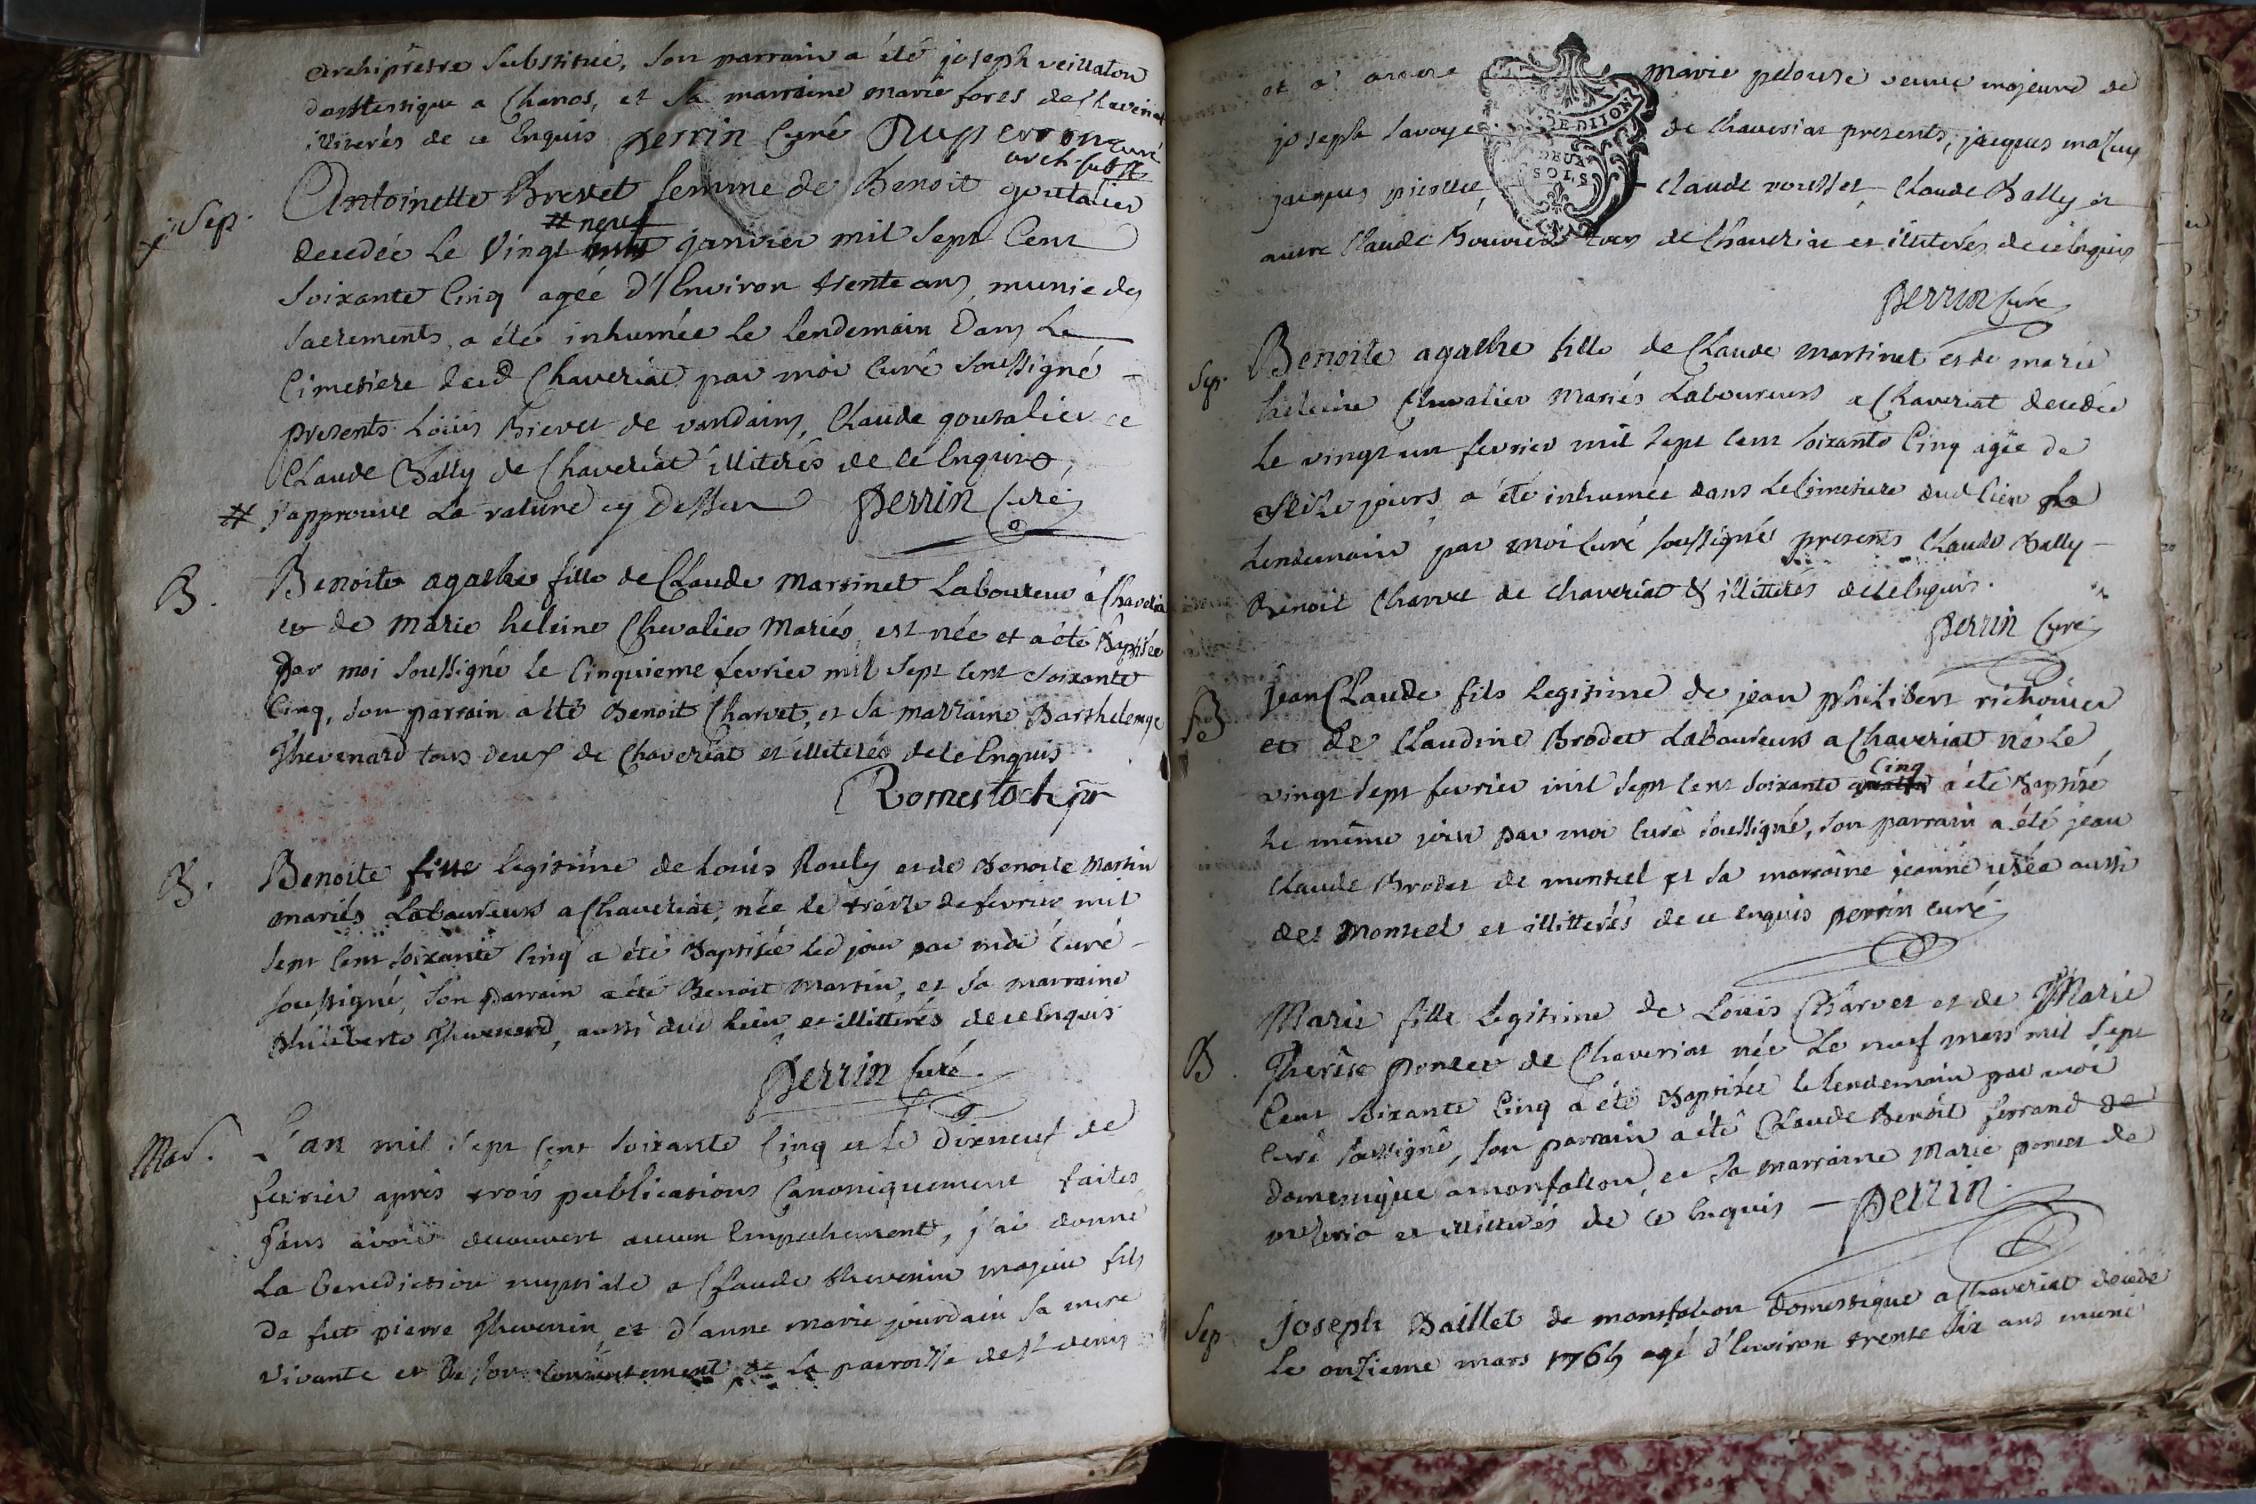 archiprêtre substitué, son parrain a été joseph veillaton
domestique a Chanos, et sa marraine marie fores de Chaveriat
illiterés de ce Enquis Perrin Curé Duperron curé
arch. subst.
Sep. Antoinette Brevet femme de Benoit goutalier
# neuf
decedée le Vingt janvier mil sept Cent
soixante Cinq agée d'Environ trente ans, munie des
sacrements, a été inhumée le lendemain Dans Le
Cimetiere dud Chaveriat par moi Curé soussigné
presents Loüis Brevet de vandains, Claude goutalier et
Claude Bally de Chaveriat illiterés de ce Enquis,
# j'approuve La rature cy Dessus Perrin Curé
B. Benoite agathe fille de Claude Martinet Laboureur à Chaveriat
et de Marie heleine Chevalier Mariés, est née et a été Baptisée
Par moi soussigné le Cinquieme fevrier mil sept cent soixante
Cinq, son parrain a été Benoit Charvet, et sa marraine Barthelemye
Thevenard tous deux de Chaveriat et illiterés de ce Enquis
Romestoch ptr
B. Benoite fille legitime de Loüis Rouly et de Benoite Martin
mariés Laboureurs a Chaveriat, née le treize de fevrier mil
sept Cent soixante Cinq a été Baptisée led jour par moi Curé
soussigné, son parrain a été Benoit Martin, et sa marraine
philiberte Thevenard, aussi dud lieu et illitterés de ce Enquis
Perrin Curé
Mar. L'an mil sept Cent soixante Cinq et le Dixneuf de
fevrier après trois publications Canoniquement faites
sans avoir decouvert aucun Empechement, j'ai donné
La Benediction nuptiale a Claude thevenin majeur fils
de fut pierre Thevenin et d'anne marie jourdain sa mere
vivante et De son Consentement de La parroisse de St denis
et a Marie pelouse veuve majeure de
joseph Savoye de Chaveriat presents, jacques mazuy
jacques Claude rousset Claude Bally et
autre Claude Bouvier tous de Chaveriat et illiterés de ce Enquis
DE DIJON
DEUX
SOLS
Perrin Curé
Sep. Benoite agathe fille de Claude Martinet et de marie
heleine Chevalier Mariés Laboureurs a Chaveriat decedée
Le vingt un fevrier mil sept Cent soixante Cinq agée de
seize jours, a été inhumée dans le Cimetiere dud lieu Le
Lendemain par moi Curé soussigné presents Claude Bally
Benoit Charvet de Chaveriat & illitterés de ce Enquis.
Perrin Curé
B jean Claude fils legitime de jean philibert richonier
et de Claudine Brodet Laboureurs a Chaveriat né Le
Cinq
vingt sept fevrier mil sept Cent soixante quatre a été Baptisé
Le même jour par moi Curé soussigné, son parrain a été jean
Claude Brodet de montcel et sa marraine jeanne usée aussi
det Montcel et illitterés de ce enquis Perrin Curé
B. Marie fille legitime de Loüis Charvet et de Marie
Therèse poncet de Chaveriat née Le neuf mars mil sept
Cent soixante Cinq a été Baptisée le lendemain par moi
Curé soussigné, son parrain a été Claude Benoit ferrand de
domestique a monfalcon, et sa marraine Marie poncet de
mezeria et illitterés de ce Enquis Perrin.
Sep. Joseph Baillet de monsfalcon domestique a Chaveriat decedé
le onzieme mars 1765 agé d'Environ trente six ans muni